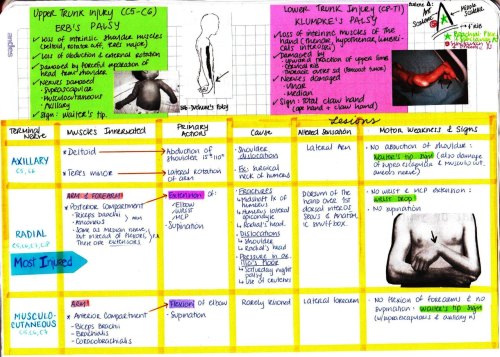 Upper Trunk Injury (C5-C6)
ERB'S PALSY
✓ Loss of intrinsic shoulder muscles
(deltoid, rotator cuff, teres major)
✓ Loss of abduction & external rotation
✓ Damaged by forceful separation of
head from shoulder
✓ Nerves damaged
- Suprascapular
- Musculocutaneous
- Axillary
✓ Sign: waiter's tip
Palsy
Lower Trunk Injury (C8-T1)
KLUMPKE'S PALSY
✓ Loss of intrinsic muscles of the
hand (thenar, hypothenar, lumbricals
✓ Damaged by
- upward traction of upper limb
- cervical rib
- thoracic outlet
✓ Nerves damaged
- Ulnar
- Median
✓ Sign: Total claw hand
(ape hand + claw hand)
Lesions
Terminal Nerve
Muscles Innervated
Primary Actions
Cause
Altered Sensation
Motor Weakness & Signs
AXILLARY
C5, C6
* Deltoid
* Teres minor
Abduction of
shoulder 15°-110°
Lateral Rotation
of arm
* Shoulder
dislocation
Fx: Surgical
neck of humerus
Lateral Arm
- No abduction of shoulder:
Waiter's tip sign (also damage
of suprascapular & musculocutaneous nerve)
RADIAL
Most Injured
ARM & FOREARM
* Posterior Compartment
- Triceps Brachii
- Anconeus
ARM
- Same as median nerve,
but instead of flexors,
there are extensors
Extension of:
- Elbow
- Wrist
- MCP
- Supination
Fractures
* Midshaft fx of
humerus
* Humerus lateral
epicondyle
* Radial head.
Dislocations
* Shoulder
* Radial's head
Pressure in the
* Saturday night
palsy
* Use of crutches
Dorsum of the
hand over 1st
dorsal interosseous & anatomic snuff box.
- No wrist & MCP extension:
WRIST DROP
- No supination
MUSCULO-
CUTANEOUS
C5, C6, C7
ARM
* Anterior Compartment
- Biceps Brachii
- Brachialis
- Coracobrachialis
Flexion of elbow
- Supination
Rarely lesioned
Lateral forearm
- No flexion of forearms & no
supination: Waiter's tip sign
(w/ suprascapular & axillary n)